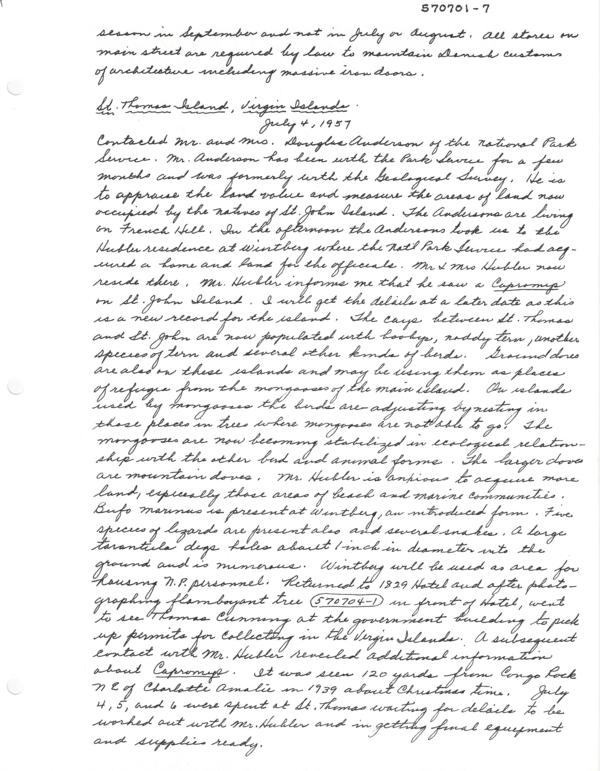 570701-7
season in September and not in July or August. All stores on
main street are required by law to maintain Danish customs
of architecture including massive iron doors.
St. Thomas Island, Virgin Islands.
July 4, 1957
Contacted Mr. and Mrs. Douglas Anderson of the National Park
Service. Mr. Anderson has been with the Park Service for a few
months and was formerly with the Geological Survey. He is
to appraise the land value and measure the areas of land now
occupied by the natives of St. John Island. The Andersons are living
on French Hill. In the afternoon the Andersons took us to the
Hubler residence at Wintberg where the Natl Park Service had acq-
uired a home and land for the officials. Mr & Mrs Hubler now
reside there. Mr. Hubler informs me that he saw a Capromys
on St. John Island. I will get the details at a later date as this
is a new record for the island. The cays between St. Thomas
and St. John are now populated with boobys, noddy tern, another
species of tern and several other kinds of birds. Ground doves
are also on these islands and may be using them as places
of refuge from the mongooses of the main island. On islands
used by mongooses the birds are adjusting by nesting in
those places in trees where mongooses are not able to go. The
mongooses are now becoming stabilized in ecological relation-
ship with the other bird and animal forms. The larger doves
are mountain doves. Mr. Hubler is anxious to acquire more
land, especially those areas of beach and marine communities.
Bufo marinus is present at Wintberg, an introduced form. Five
species of lizards are present also and several snakes. A large
tarantula digs holes about 1 inch in diameter into the
ground and is numerous. Wintberg will be used as area for
housing N.P. personnel. Returned to 1829 Hotel and after photo-
graphing flamboyant tree (570704-1) in front of Hotel, went
to see Thomas Cunning at the government building to pick
up permits for collecting in the Virgin Islands. A subsequent
contact with Mr. Hubler revealed additional information
about Capromys. It was seen 120 yards from Congo Rock
NE of Charlotte Amalie in 1939 about Christmas time. July
4, 5, and 6 were spent at St. Thomas waiting for details to be
worked out with Mr. Hubler and in getting final equipment
and supplies ready.